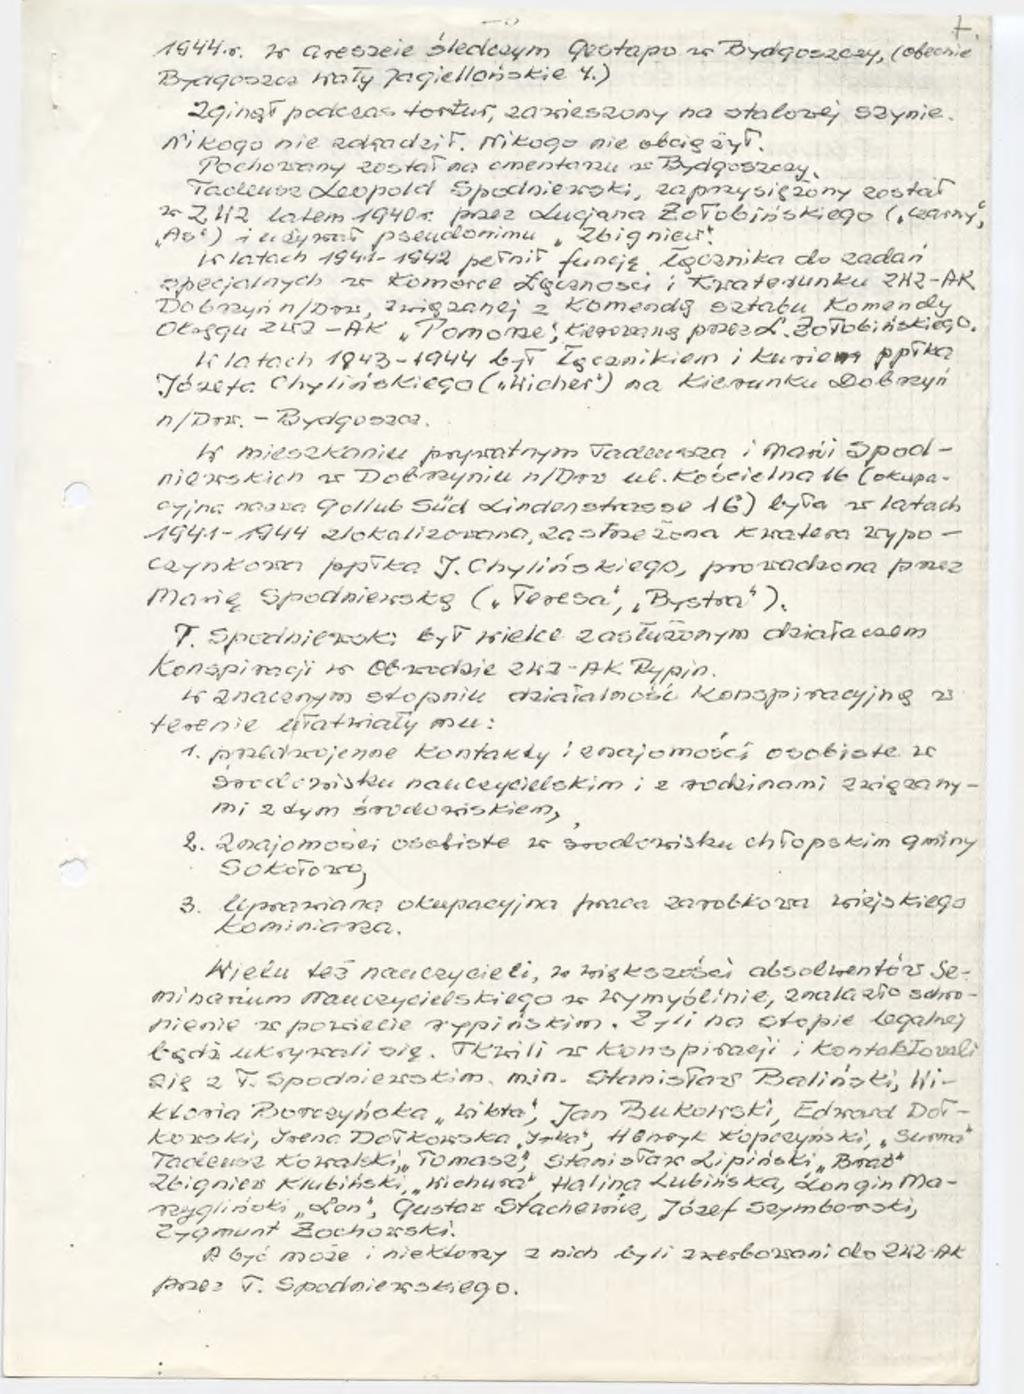 7.
1944.r. w areszcie śledczym Gestapo w Bydgoszczy, (obecnie
Bydgoszcz Wały Jagiellońskie 4.)
Zginął podczas tortur, zawieszony na stalowej szynie.
Nikogo nie zdradził. Nikogo nie obciążył.
Pochowany został na cmentarzu w Bydgoszczy.
Tadeusz Leopold Spodniewski, zaprzysiężony został
w ZWZ latem 1940r. przez Lucjana Żołobińskiego („Czarny",
„As") i używał pseudonimu „Zbigniew".
W latach 1941-1942 pełnił funcję łącznika do zadań
specjalnych w Komórce Łączności i Kwaterunku ZWZ-AK
Dobrzyń n/Drw, związanej z Komendą sztabu Komendy
Okręgu ZWZ-AK „Pomorze", kierowaną przez L. Żołobińskiego.
W latach 1943-1944 był łącznikiem i kurierem ppłka
Józefa Chylińskiego („Wicher") na kierunku Dobrzyń
n/Drw. - Bydgoszcz.
W mieszkaniu prywatnym Tadeusza i Marii Spod-
niewskich w Dobrzyniu n/Drw ul. Kościelna 16 (okupa-
cyjna nazwa Gollub Süd Lindenstrasse 16) była w latach
1941-1944 zlokalizowana, zastrzeżona kwatera wypo-
czynkowa ppłka J. Chylińskiego, prowadzona przez
Marię Spodniewską („Teresa", „Bystra").
T. Spodniewski był wielce zasłużonym działaczem
Konspiracji w Obwodzie ZWZ-AK Rypin.
W znacznym stopniu działalność konspiracyjną w
terenie ułatwiały mu:
1. przedwojenne kontakty i znajomości osobiste w
środowisku nauczycielskim i z rodzinami związany-
mi z tym środowiskiem,
2. Znajomości osobiste w środowisku chłopskim gminy
Sokołowo,
3. Uprawiana okupacyjna praca zarobkowa wiejskiego
kominiarza.
Wielu też nauczycieli, w większości absolwentów Se-
minarium Nauczycielskiego w Wymyślinie, znalazło schro-
nienie w powiecie rypińskim. Żyli na stopie legalnej
bądź ukrywali się. Tkwili w konspiracji i kontaktowali
się z T. Spodniewskim. m.in. Stanisław Baliński, Wi-
ktoria Borczyńska „Wikta", Jan Bukowski, Edward Doł-
kowski, Irena Dołkowska „Irka", Henryk Kopczyński, „Surma"
Tadeusz Kowalski, „Tomasz", Stanisław Lipiński „Brat"
Zbigniew Klubiński, „Wichura", Halina Lubińska, Longin Ma-
rzygliński „Lon", Gustaw Stachewicz, Józef Szymborski,
Zygmunt Żochowski.
A być może i niektórzy z nich byli zwerbowani do ZWZ-AK
przez T. Spodniewskiego.